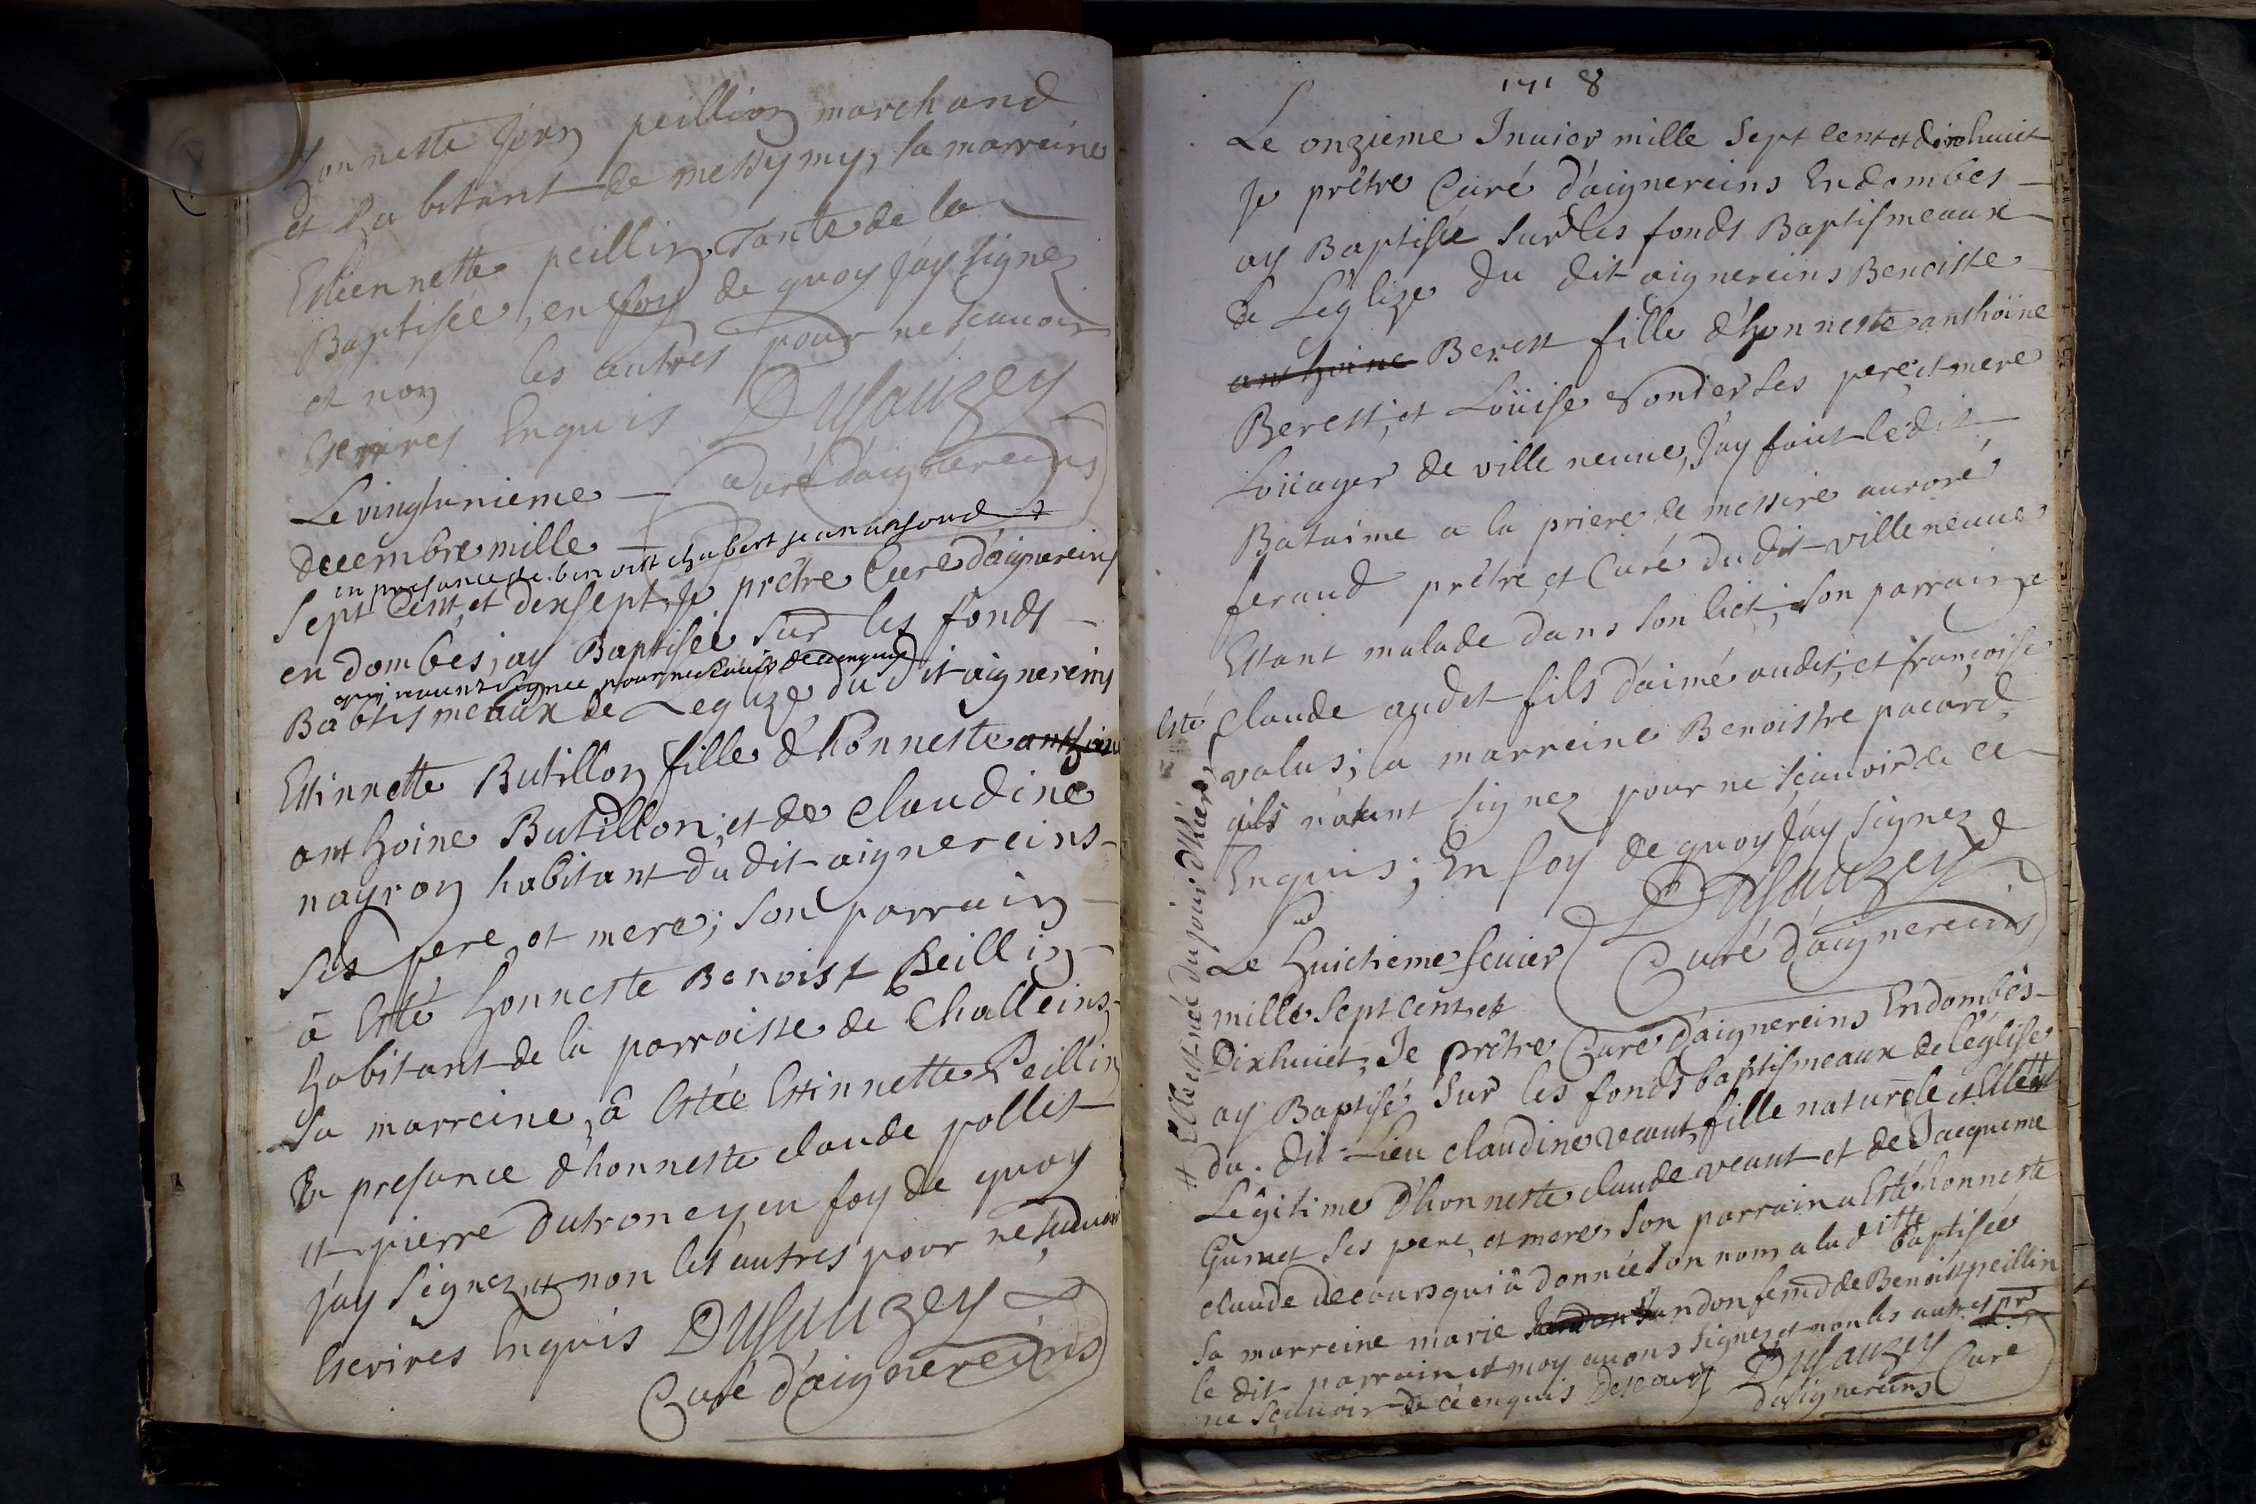 honneste Jean peillion marchand
et habitant de messymy, la marreine
Estiennette peillin, Tante de la
Baptisée, en foy de quoy j'ay signez
et non les autres pour ne scauoir
escrires Enquis Dusauzey
Curé d'aignereins
Le vingtunieme
decembre mille
en presance de benoist chabert jean
Sept Cent, et dixsept, Je prêtre Curé d'aignereins
en dombes, ay Baptisée sur les fonds
qui n'ont signez pour ne scauoir de ce enquis
Babtismeaux de Leglize du dit aignereins
Estinnette Butillon fille d'honneste anthoine
anthoine Butillon, et de Claudine
nayron habitant du dit aignereins
Ses pere et mere; Son parrain
à Esté honneste Benoist Peillin
habitant de la parroisse de Challeins
Sa marreine, à Estée Estinnette Peillin
En presance d'honneste claude pollet
et pierre dutroncy, en foy de quoy
j'ay signez et non les autres pour ne scauoir
Escrires Enquis Dusauzey
Curé d'aignereins
1718
Le onzieme Inuier mille Sept Cent et dixhuict
Je prêtre Curé d'aignereins En dombes
ay Baptisée sur les fonds Baptismeaux
de Léglize du dit aignereins Benoiste
anthoine Berest fille d'honneste anthoine
Berest, et Loüise Ses pere et mere
Loüager de ville neuue, J'ay fait le dit
Bataime a la priere de messire auroré
feraud prêtre, et Curé du dit ville neuue
Estant malade dans son lict; Son parrain a
Esté Claude audet fils d'aimé audet, et françoise
valus; la marreine Benoistre pacard
qils n'ont signez pour ne sçauoir de ce
Enquis; En foy de quoy J'ay signez
Dusauzey
Curé d'aignereins
Le huictieme feuier
mille Sept Cent et
Dixhuict, Je Prêtre Curé d'aignereins En dombês
ay Baptisé sur les fonds baptismeaux de léglise
du dit Lieu claudine veaut, fille naturele et
Légitime D'honneste claude veaut et de Jacqueme
Gurnet Ses pere, et mere, Son parrain a Esté honneste
claude decours qui à donnée son nom a la ditte baptisée
Sa marreine marie Jandon fem̃e de Benoist peillin
le dit parrain et moy auons signez et non les autres pr
ne scauoir de ce enquis Decours Dusauzey Curé
d'aignereins
# Elle est née du jour d'hier